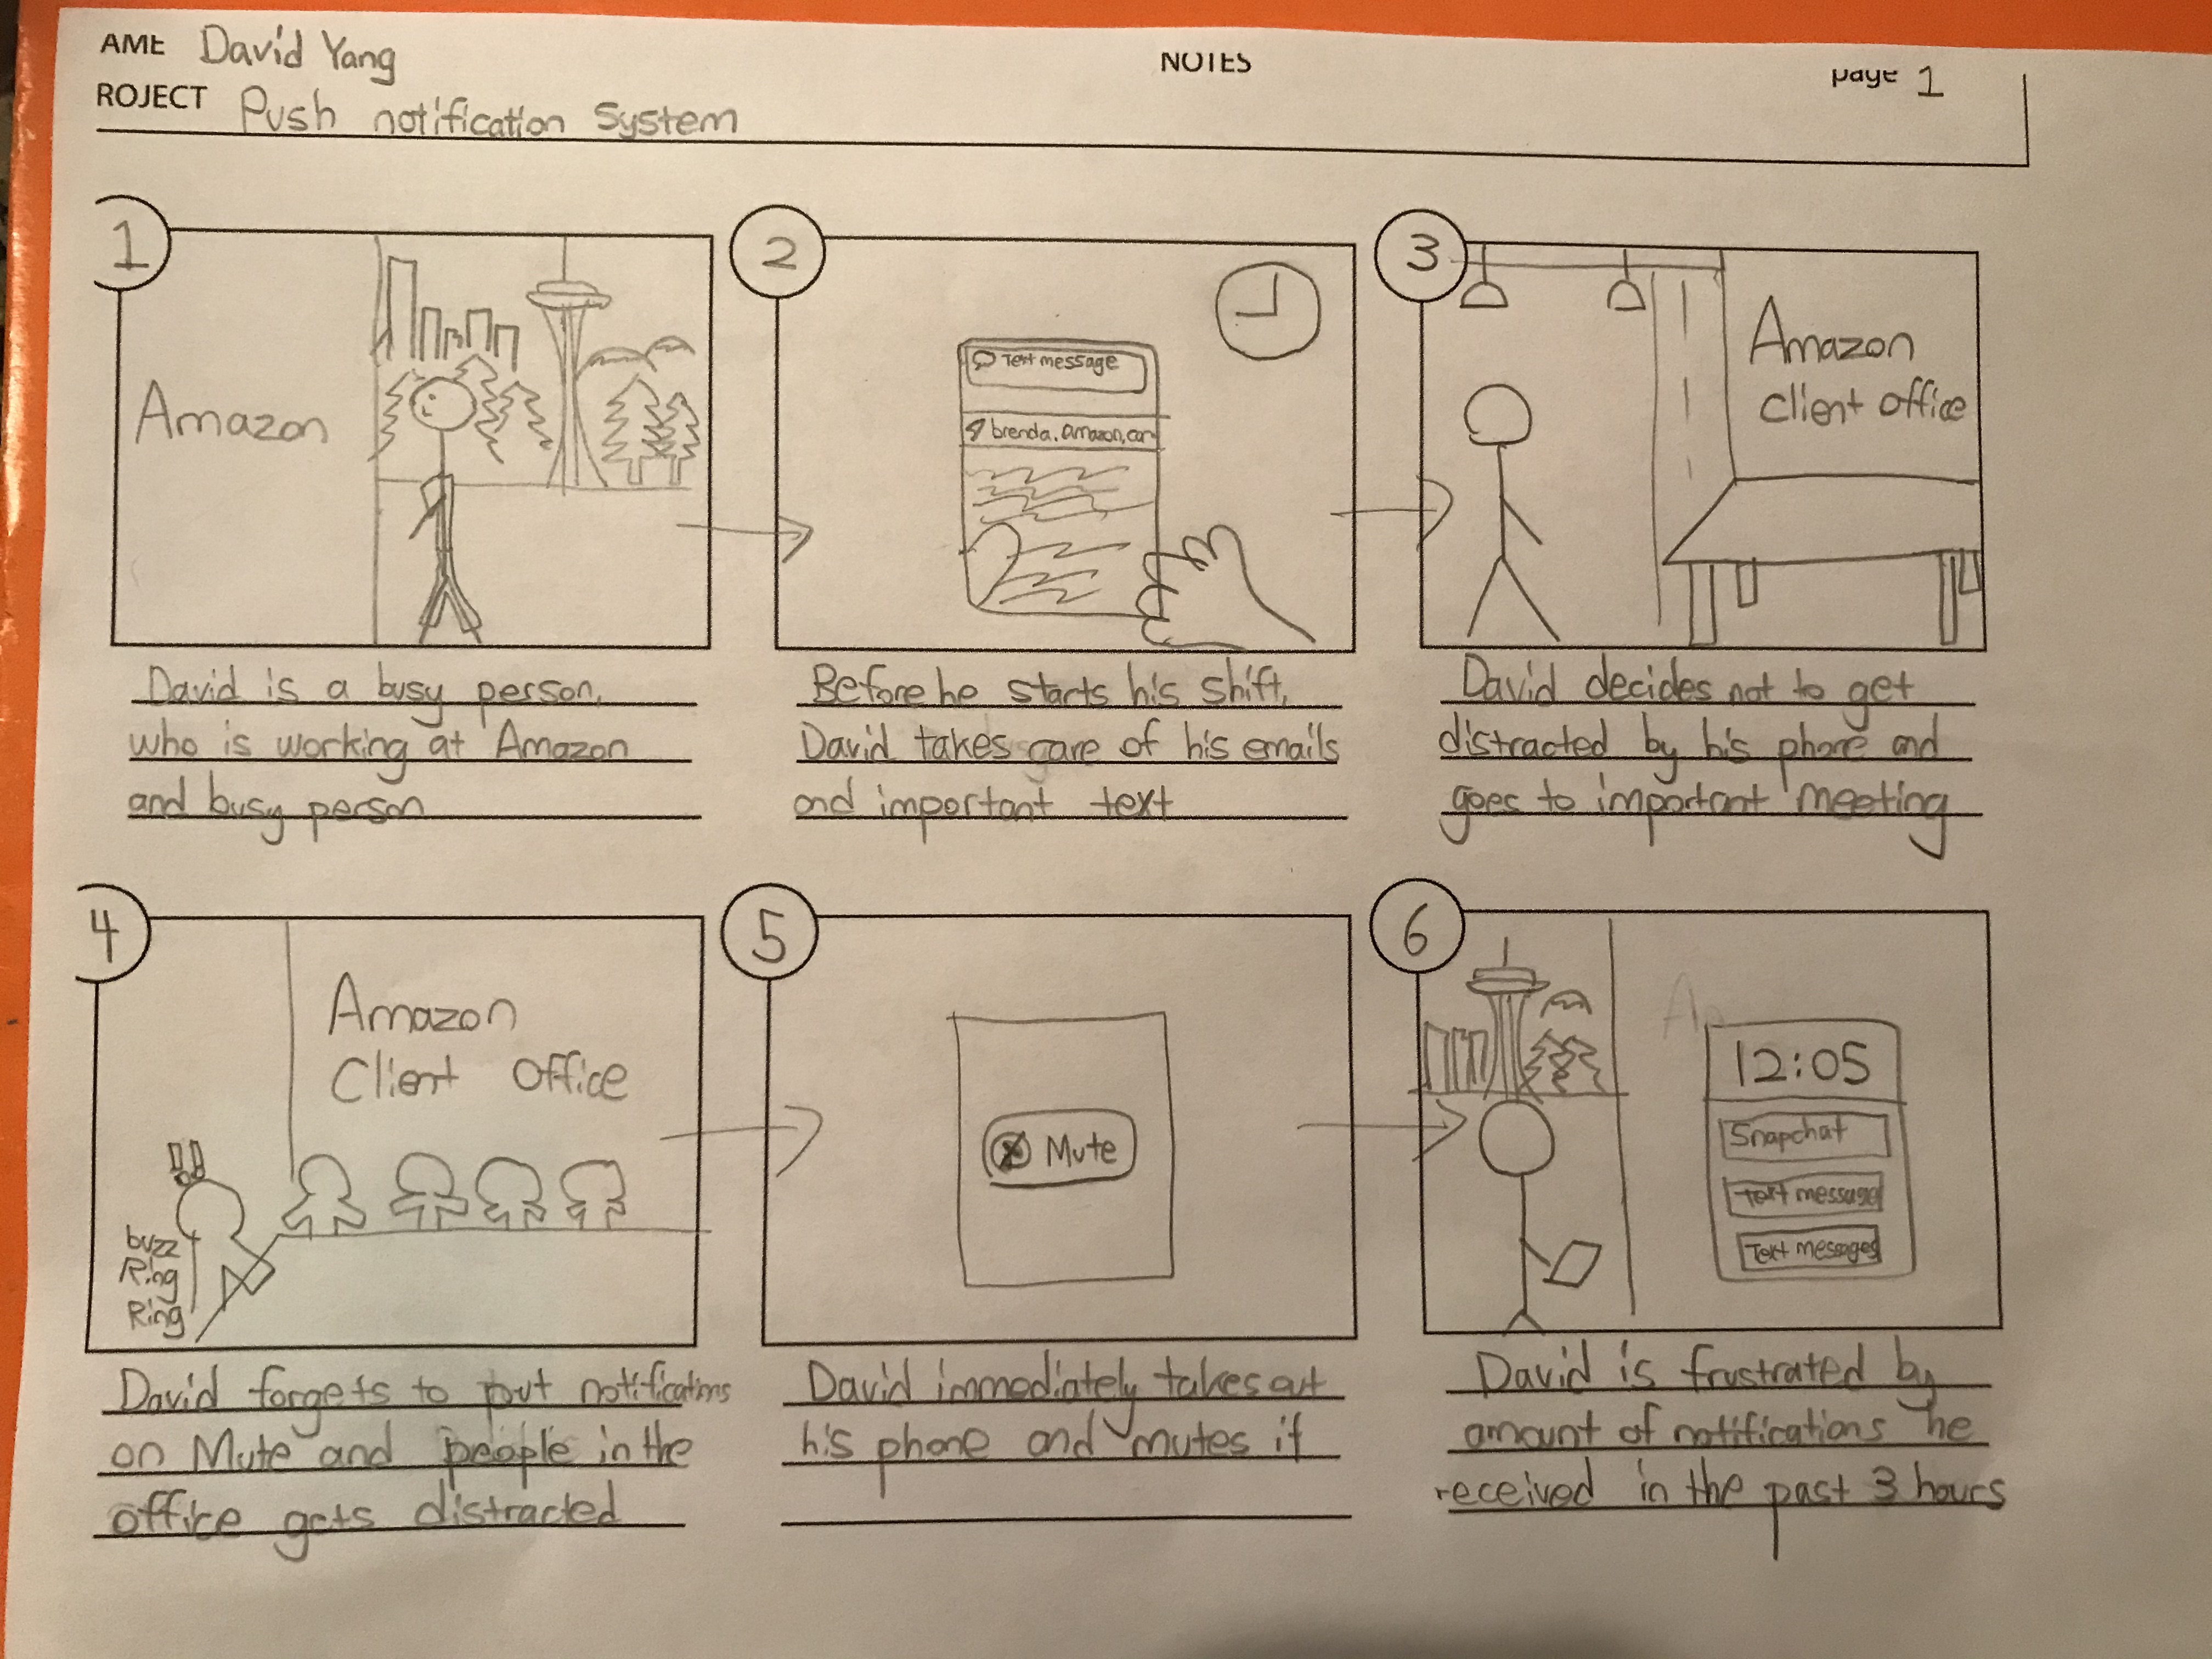 AME David Yang
NOTES
page 1
ROJECT Push notification System
1
Amazon
David is a busy person,
who is working at Amazon
and busy person
2
Text message
brenda.amazon.com
Before he starts his shift,
David takes care of his emails
and important text
3
Amazon
client office
David decides not to get
distracted by his phone and
goes to important meeting
4
Amazon
Client Office
!!
buzz
Ring
Ring
David forgets to put notifications
on Mute and people in the
office gets distracted
5
Mute
David immediately takes out
his phone and mutes it
6
12:05
Snapchat
Text message
Text messages
David is frustrated by
amount of notifications he
received in the past 3 hours